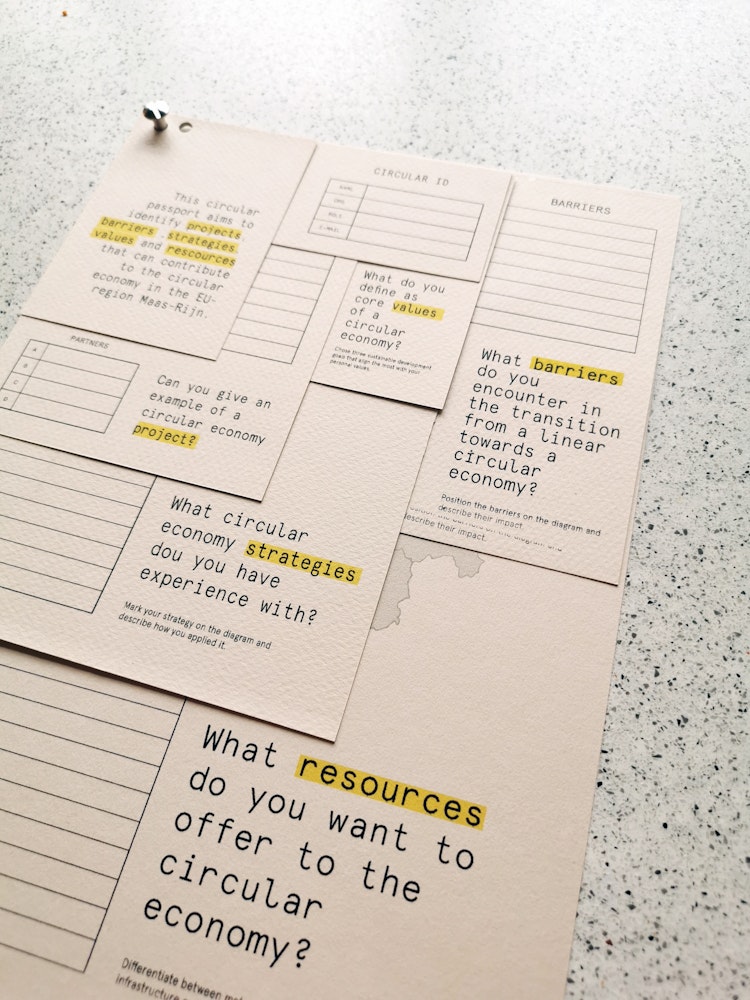 This circular
passport aims to
identify projects,
barriers, strategies,
values and rescources
that can contribute
to the circular
economy in the EU-
region Maas-Rijn.
CIRCULAR ID
NAME
ORG.
ROLE
E-MAIL
BARRIERS
What do you
define as
core values
of a
circular
economy?
Chose three sustainable development
goals that align the most with your
personal values.
What barriers
do you
encounter in
the transition
from a linear
towards a
circular
economy?
Position the barriers on the diagram and
describe their impact.
describe their impact.
PARTNERS
A
B
C
D
Can you give an
example of a
circular economy
project?
What circular
economy strategies
dou you have
experience with?
Mark your strategy on the diagram and
describe how you applied it.
What resources
do you want to
offer to the
circular
economy?
Differentiate between
infrastructure